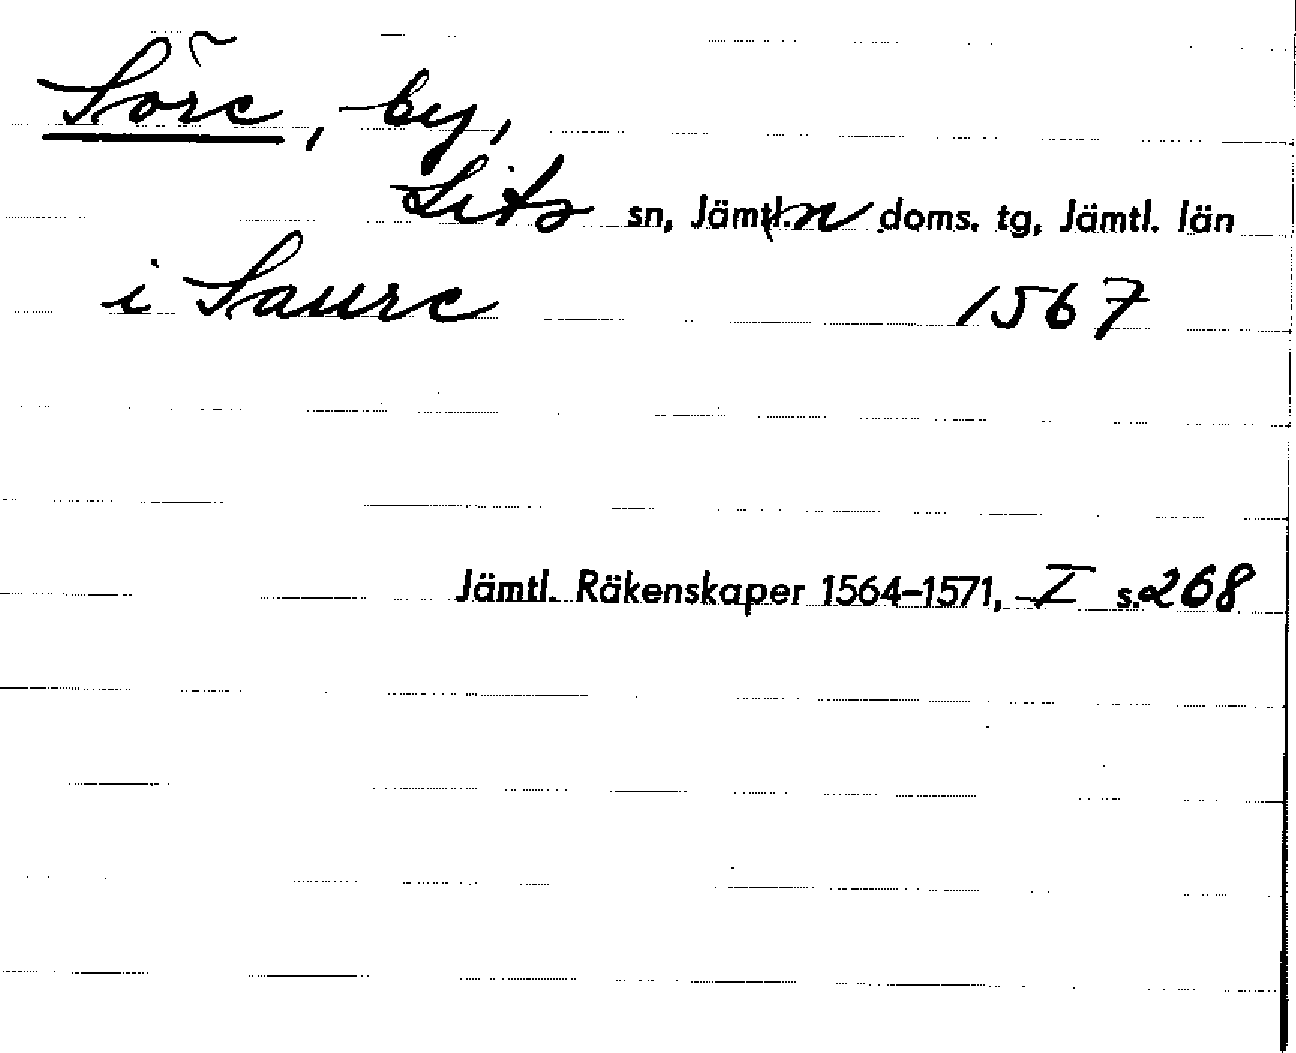 Söre, by,
Lits sn, Jämtl. n doms. tg, Jämtl. län
i Saure 1567
Jämtl. Räkenskaper 1564–1571, I s. 268